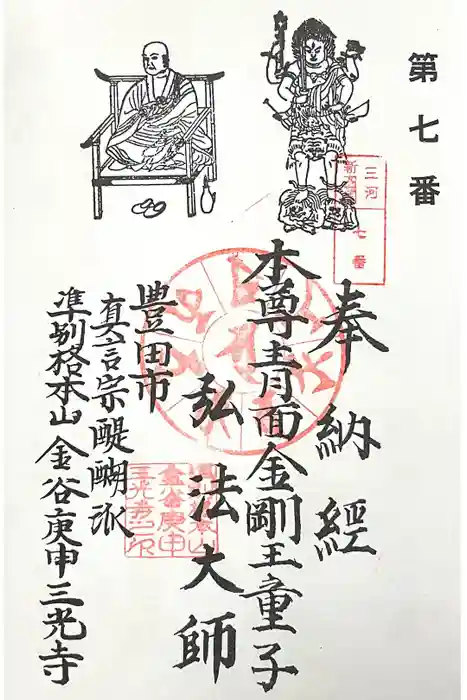 第七番
三河
新四国
七番
奉納経
本尊青面金剛王童子
弘法大師
豊田市
真言宗醍醐派
準別格本山 金谷庚申三光寺